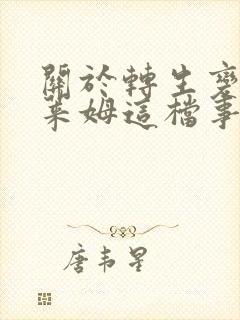 關於轉生變
萊姆這檔事
唐韦星